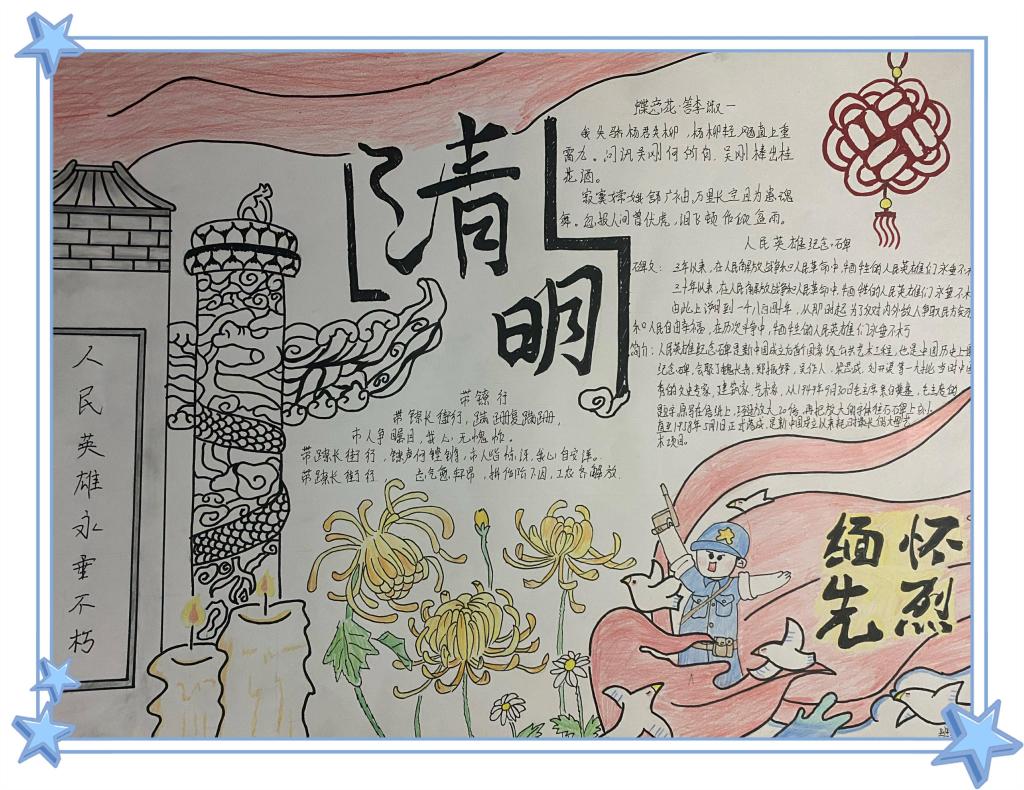 清明
蝶恋花·答李淑一
我失骄杨君失柳，杨柳轻飏直上重
霄九。问讯吴刚何所有，吴刚捧出桂
花酒。
寂寞嫦娥舒广袖，万里长空且为忠魂
舞。忽报人间曾伏虎，泪飞顿作倾盆雨。
人民英雄纪念碑
碑文：三年以来，在人民解放战争和人民革命中，牺牲的人民英雄们永垂不朽
三十年以来，在人民解放战争和人民革命中，牺牲的人民英雄们永垂不朽
由此上溯到一千八百四十年，从那时起为了反对内外敌人争取民方
和人民自由幸福，在历次斗争中，牺牲的人民英雄们永垂不朽
简介：人民英雄纪念碑是新中国成立后首个国家级公共艺术工程，也是中国历史上最
纪念碑，
题字原写在信纸上，放大20倍，再把放大
直至1958年5月1日正式落成，是新中国成立以来
术项目。
带镣行
带镣长街行，蹒跚复蹒跚，
市人争瞩目，我心无愧怍。
带镣长街行，镣声何铿锵，市人皆惊讶，我心自安详。
带镣长街行，志气愈轩昂，拼作阶下囚，工农齐解放.
人民英雄永垂不朽
缅怀
先烈